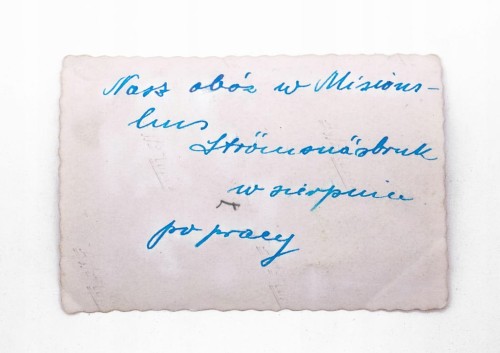 Nasz obóz w Misions-
hus
Strömsnäsbruk
w sierpniu
po pracy